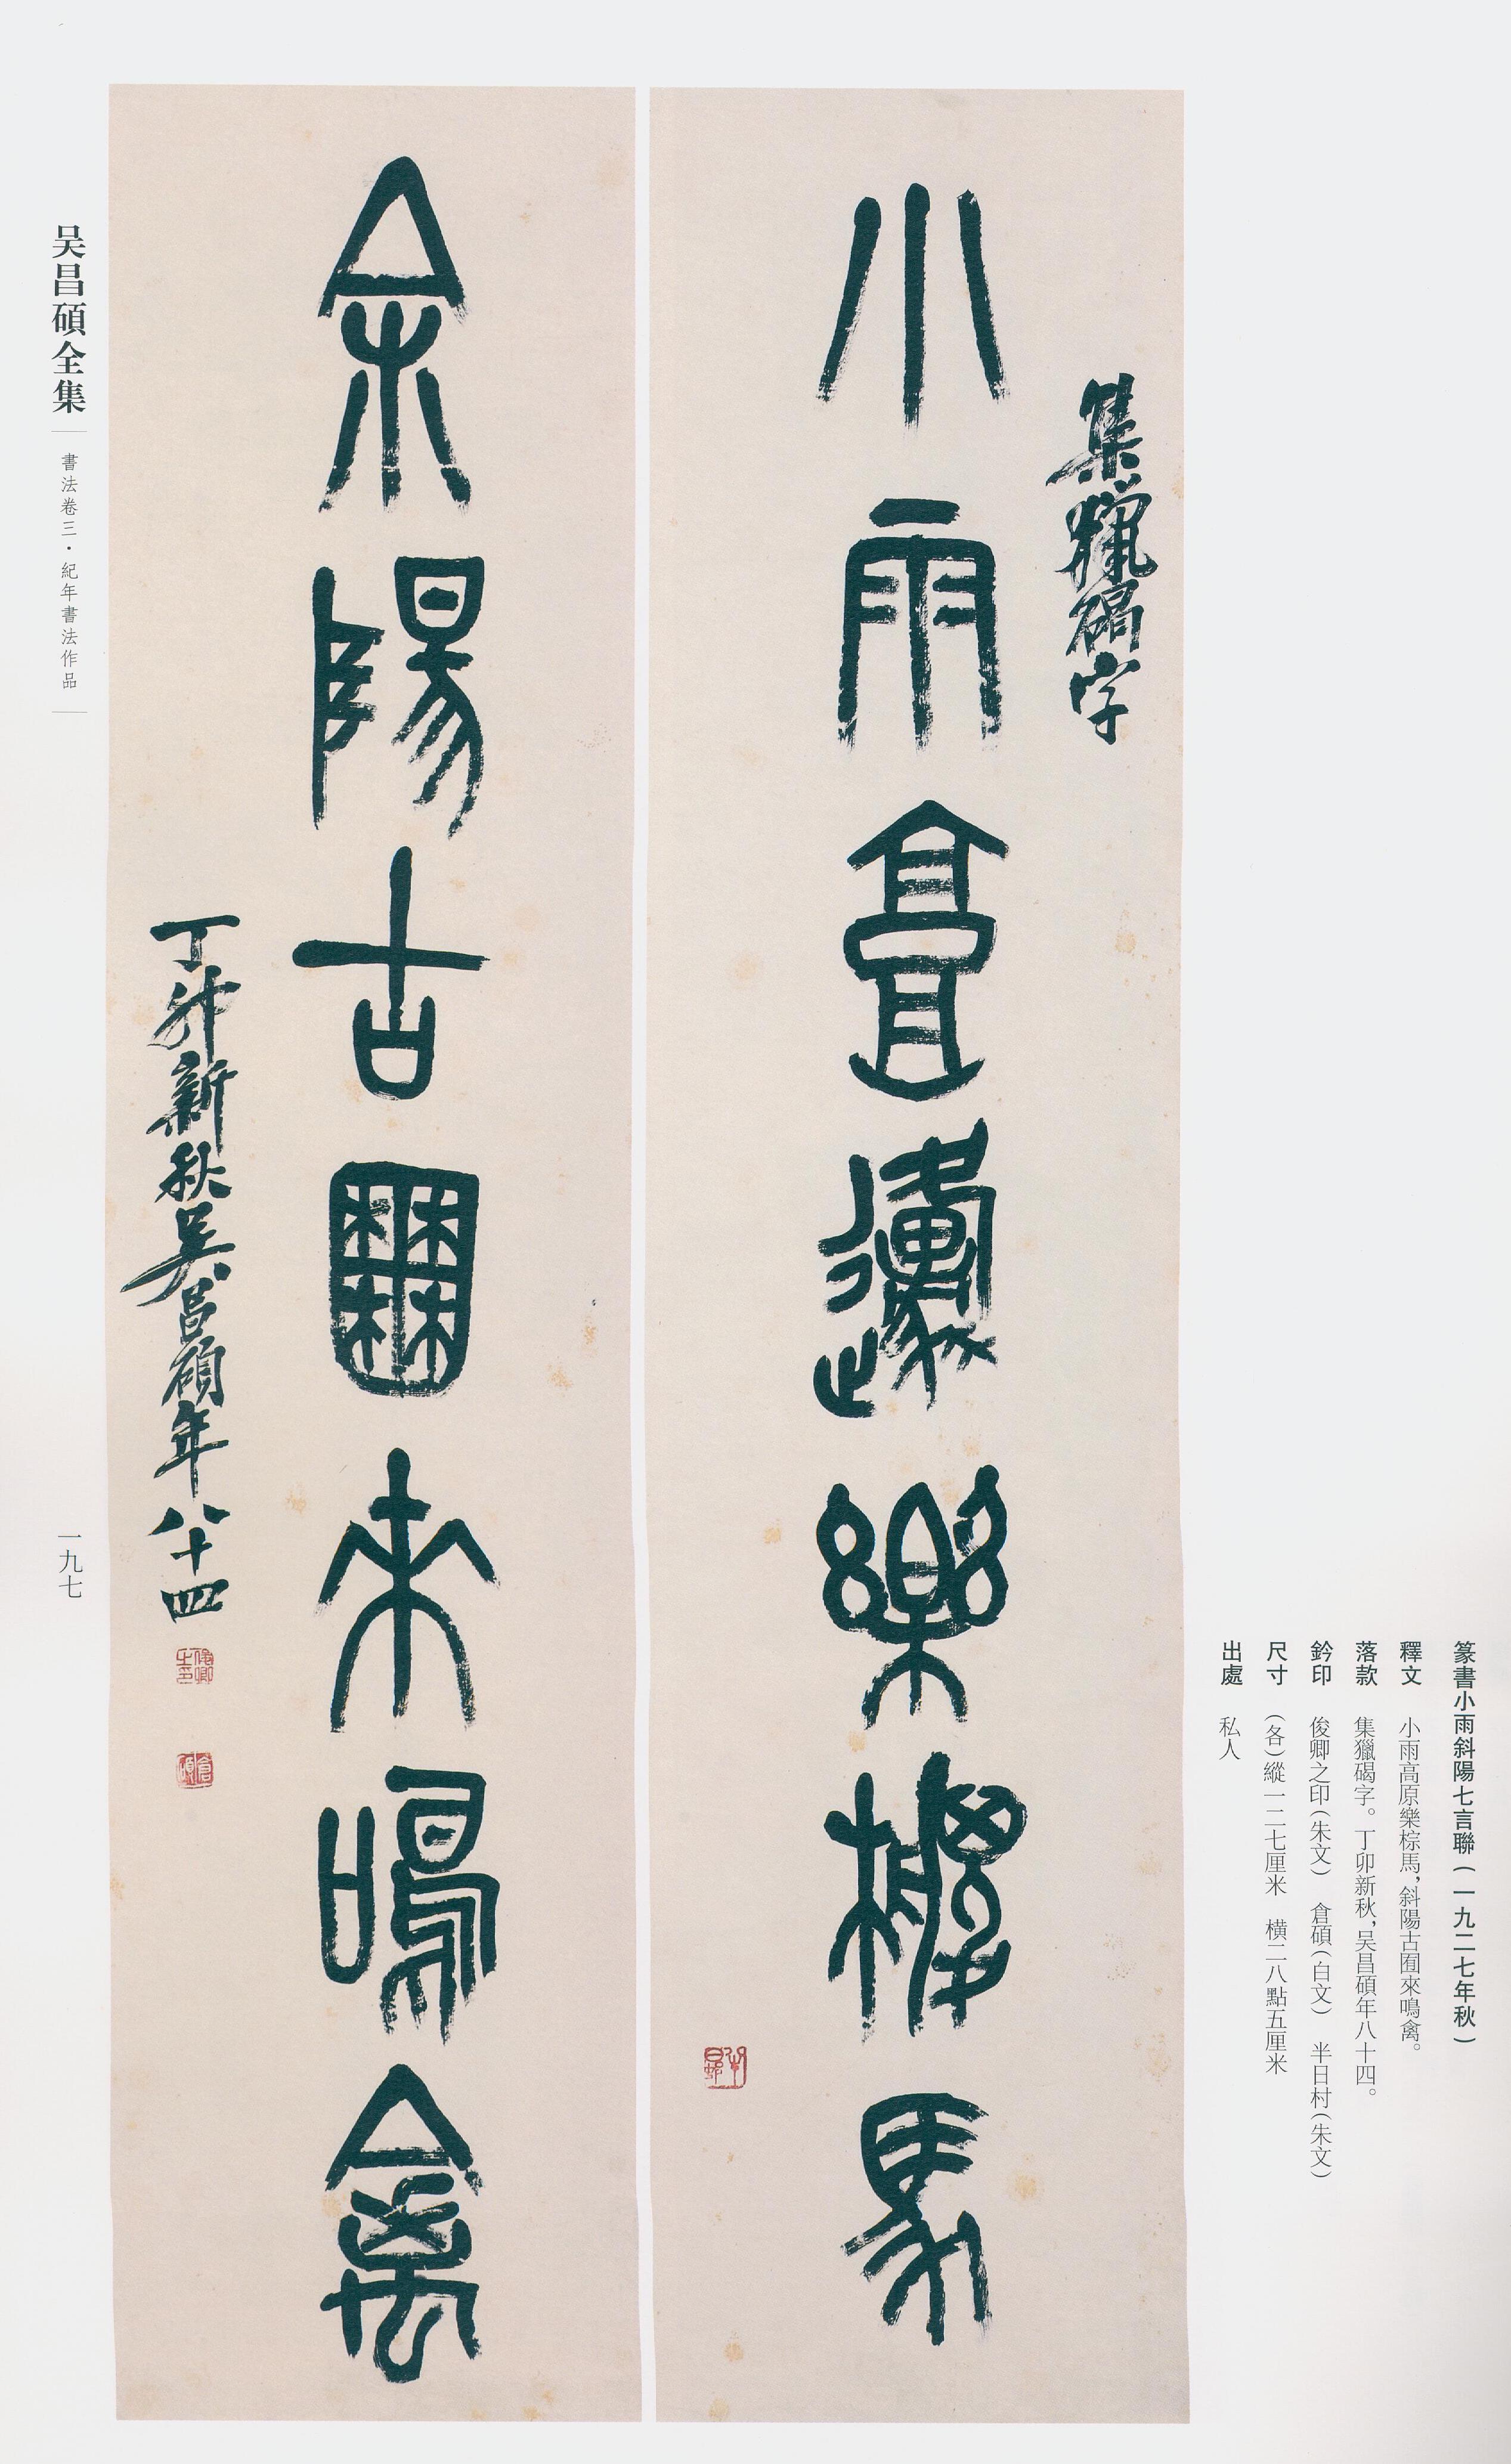 篆書小雨斜陽七言聯（一九二七年秋）
釋文 小雨高原樂棕馬，斜陽古囿來鳴禽。
落款 集獵碣字。丁卯新秋，吴昌碩年八十四。
鈐印 俊卿之印（朱文） 倉碩（白文） 半日村（朱文）
尺寸 （各）縱一二七厘米 橫二八點五厘米
出處 私人
集獵碣字
小雨高原樂棕馬
半日村
斜陽古囿來鳴禽
丁卯新秋吴昌碩年八十四
俊卿之印
倉碩
吴昌碩全集
書法卷三·紀年書法作品
一九七